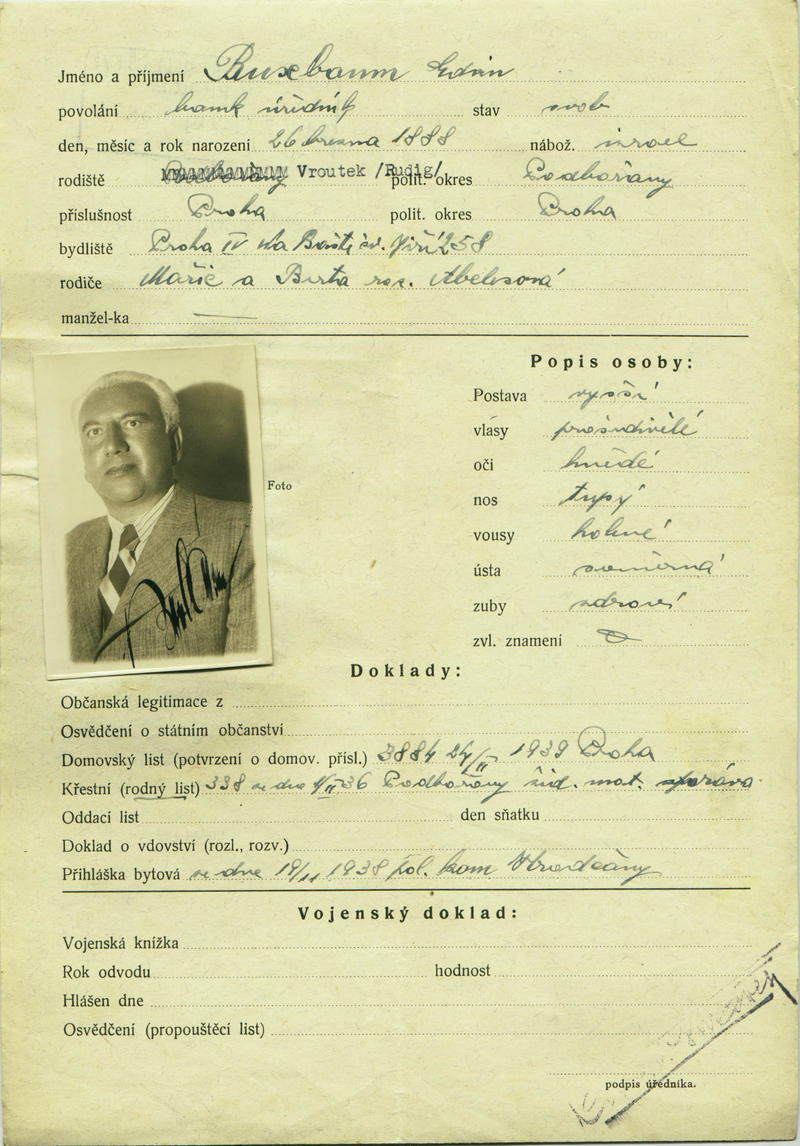 Jméno a příjmení Buxbaum Edvin
povolání bank úředník stav svob
den, měsíc a rok narození 26 března 1888 nábož. israel
rodiště Vroutek /Rudig/ polit. okres Podbořany
příslušnost Praha polit. okres Praha
bydliště Praha IV Na Baště sv. Jiří 258
rodiče a Berta roz. Abelesová
manžel-ka —
Popis osoby:
Postava vyšší
vlasy prošedivělé
oči hnědé
Foto
nos tupý
vousy holené
ústa souměrná
zuby zdravé
zvl. znamení
Doklady:
Občanská legitimace z
Osvědčení o státním občanství
Domovský list (potvrzení o domov. přísl.) 3884 24/II 1939 Praha
Křestní (rodný list) 338 ze dne 36 Podbořany žid. mat. správa
Oddací list den sňatku
Doklad o vdovství (rozl., rozv.)
Přihláška bytová ze dne 19/11 1938 pol. kom Hradčany
Vojenský doklad:
Vojenská knížka
Rok odvodu hodnost
Hlášen dne
Osvědčení (propouštěcí list)
podpis úředníka.